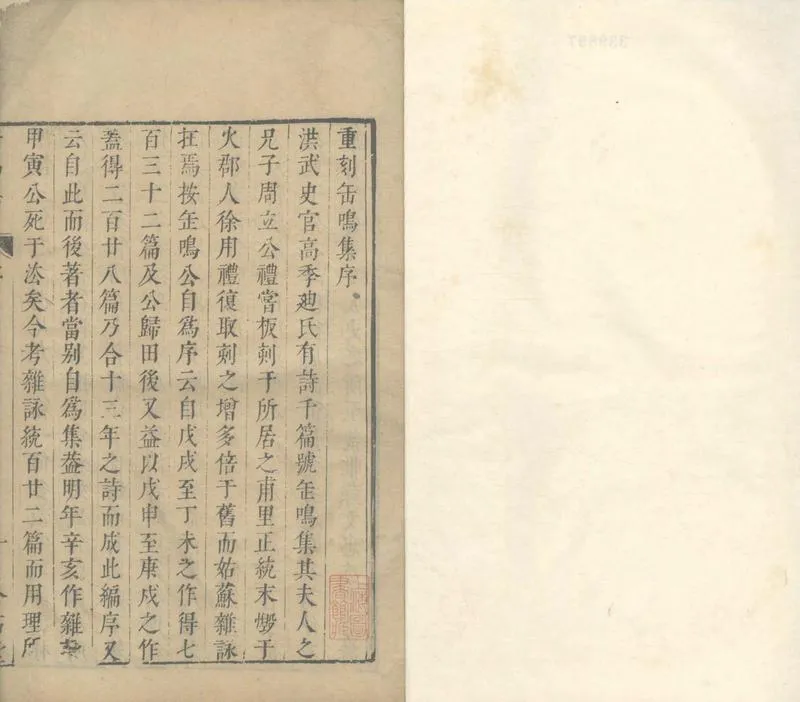 重刻缶鳴集序
洪武史官高季迪氏有詩千篇號缶鳴集其夫人之
兄子周立公禮嘗板刻于所居之甫里正統末燬于
火郡人徐用禮復取刻之增多倍于舊而姑蘇雜詠
在焉按缶鳴公自爲序云自戊戌至丁未之作得七
百三十二篇及公歸田後又益以戊申至庚戌之作
蓋得二百廿八篇乃合十三年之詩而成此編序又
云自此而後著者當别自爲集葢明年辛亥作雜詠
甲寅公死于法矣今考雜詠統百廿二篇而用理所